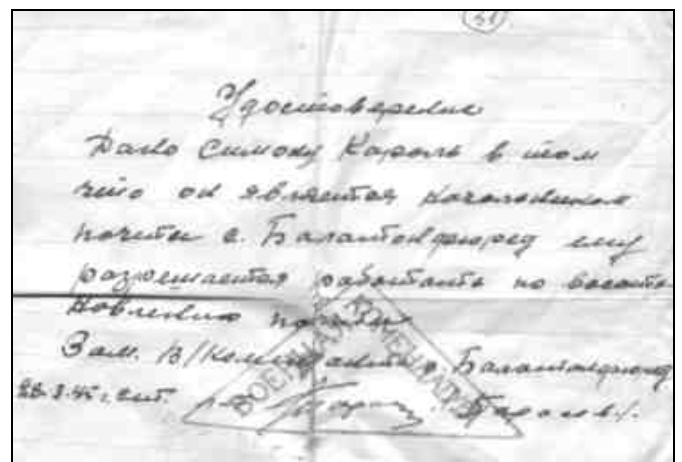 51
Удостоверение
Дано Симону Кароль в том
что он является начальником
почты с. Балатонфюред ему
разрешается работать по восста-
новлению почты
Зам. В/Коменданта с Балатонфюред
ВОЕННАЯ КОМЕНДАТУРА
28.3.45 г.